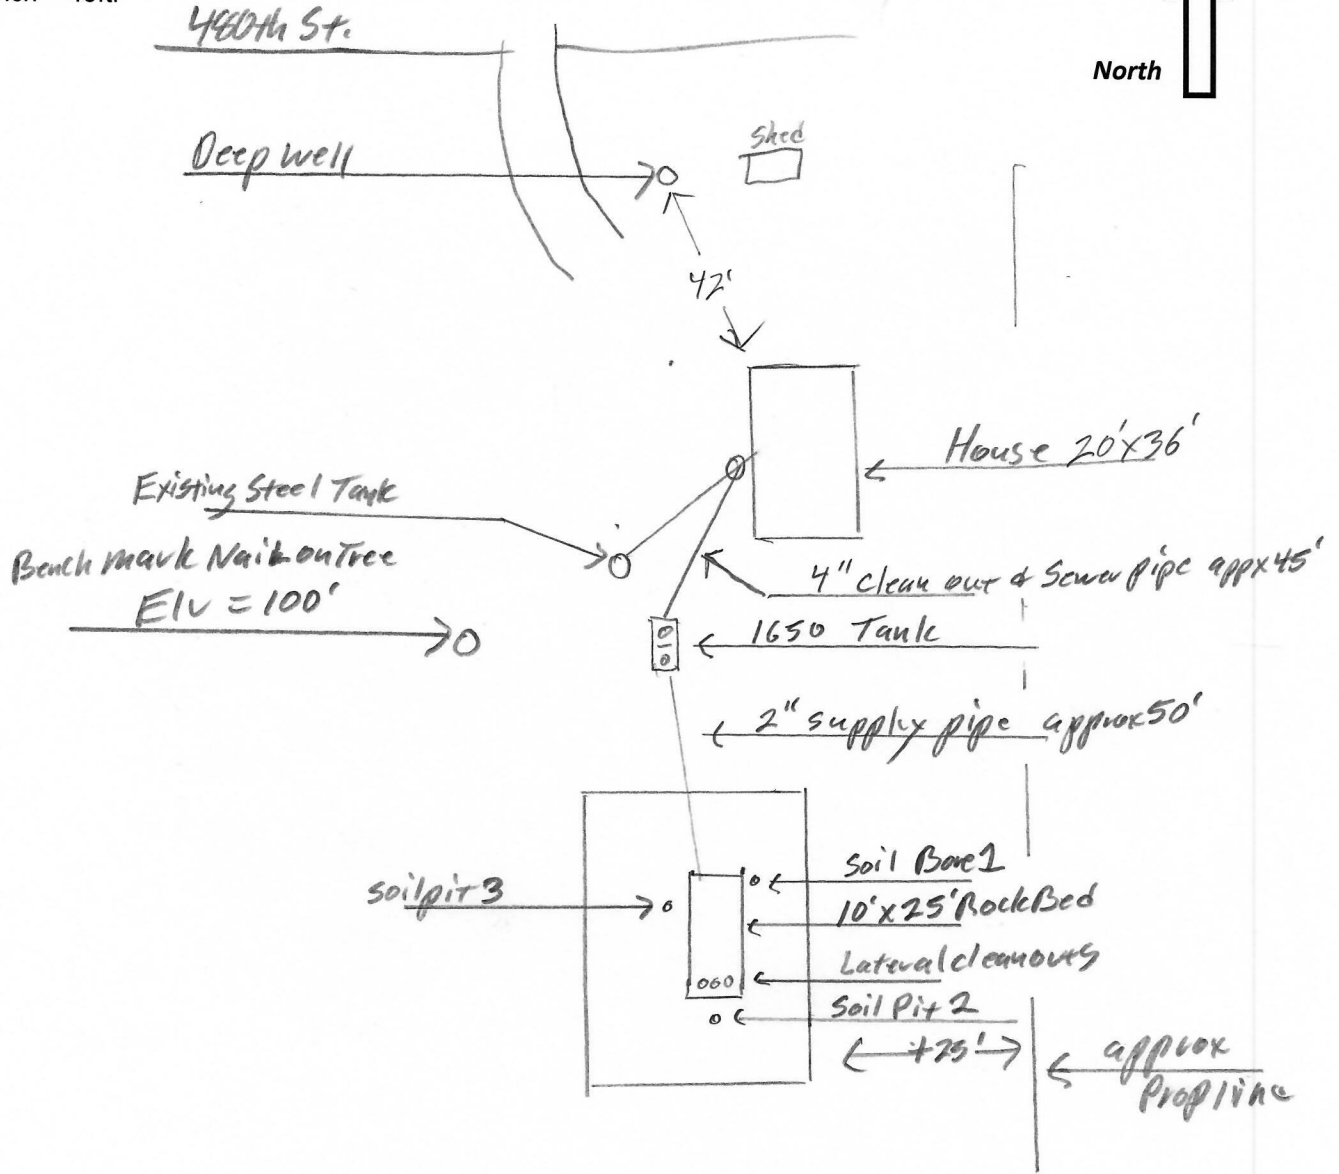 480th St.
North
Shed
Deep well
42'
House 20'x36'
Existing Steel Tank
Bench mark Nail on Tree
Elv = 100'
4" Clean out & Sewer pipe appx 45'
1650 Tank
2" supply pipe approx 50'
Soil Bore 1
soil pit 3
10'x25' Rock Bed
Lateral cleanouts
Soil Pit 2
+25'
approx
Prop line